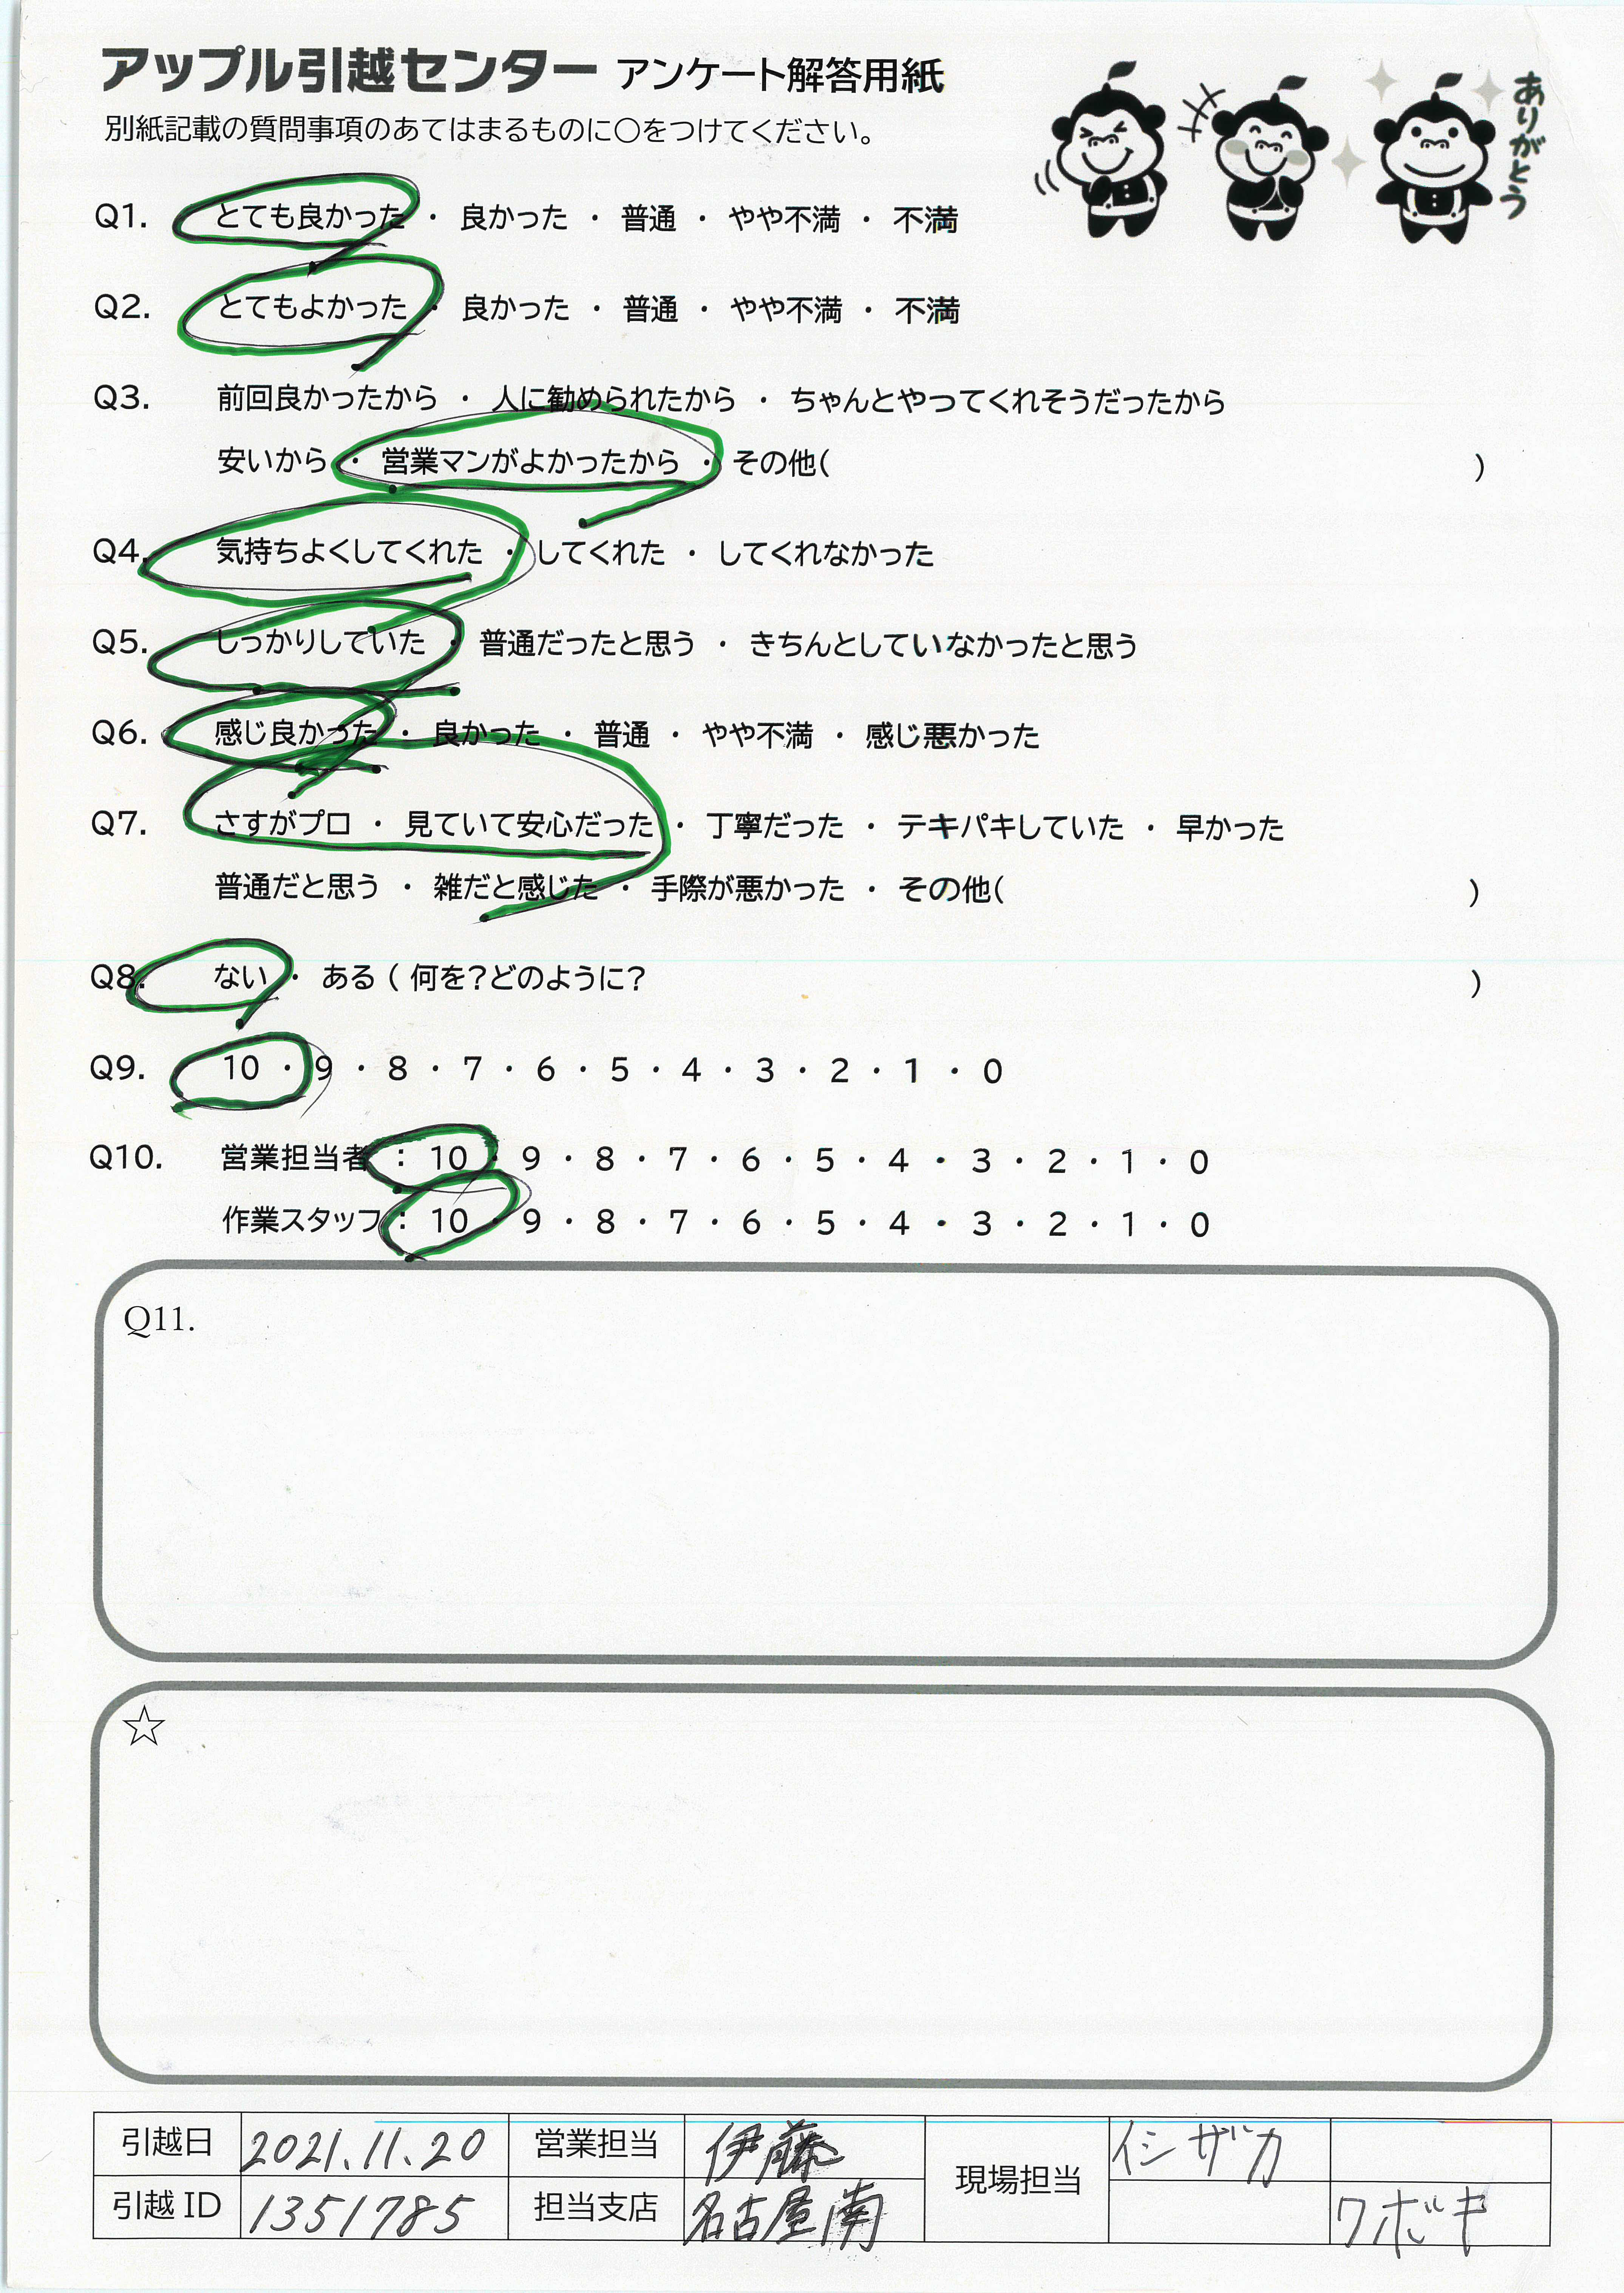 アップル引越センター アンケート解答用紙
別紙記載の質問事項のあてはまるものに〇をつけてください。
ありがとう
Q1. とても良かった ・ 良かった ・ 普通 ・ やや不満 ・ 不満
Q2. とてもよかった ・ 良かった ・ 普通 ・ やや不満 ・ 不満
Q3. 前回良かったから ・ 人に勧められたから ・ ちゃんとやってくれそうだったから
安いから ・ 営業マンがよかったから ・ その他( )
Q4. 気持ちよくしてくれた ・ してくれた ・ してくれなかった
Q5. しっかりしていた ・ 普通だったと思う ・ きちんとしていなかったと思う
Q6. 感じ良かった ・ 良かった ・ 普通 ・ やや不満 ・ 感じ悪かった
Q7. さすがプロ ・ 見ていて安心だった ・ 丁寧だった ・ テキパキしていた ・ 早かった
普通だと思う ・ 雑だと感じた ・ 手際が悪かった ・ その他( )
Q8. ない ・ ある ( 何を?どのように? )
Q9. 10 ・ 9 ・ 8 ・ 7 ・ 6 ・ 5 ・ 4 ・ 3 ・ 2 ・ 1 ・ 0
Q10. 営業担当者 : 10 ・ 9 ・ 8 ・ 7 ・ 6 ・ 5 ・ 4 ・ 3 ・ 2 ・ 1 ・ 0
作業スタッフ : 10 ・ 9 ・ 8 ・ 7 ・ 6 ・ 5 ・ 4 ・ 3 ・ 2 ・ 1 ・ 0
Q11.
☆
引越日 2021.11.20 営業担当 伊藤 現場担当 イシザカ
引越 ID 1351785 担当支店 名古屋南 クボキ